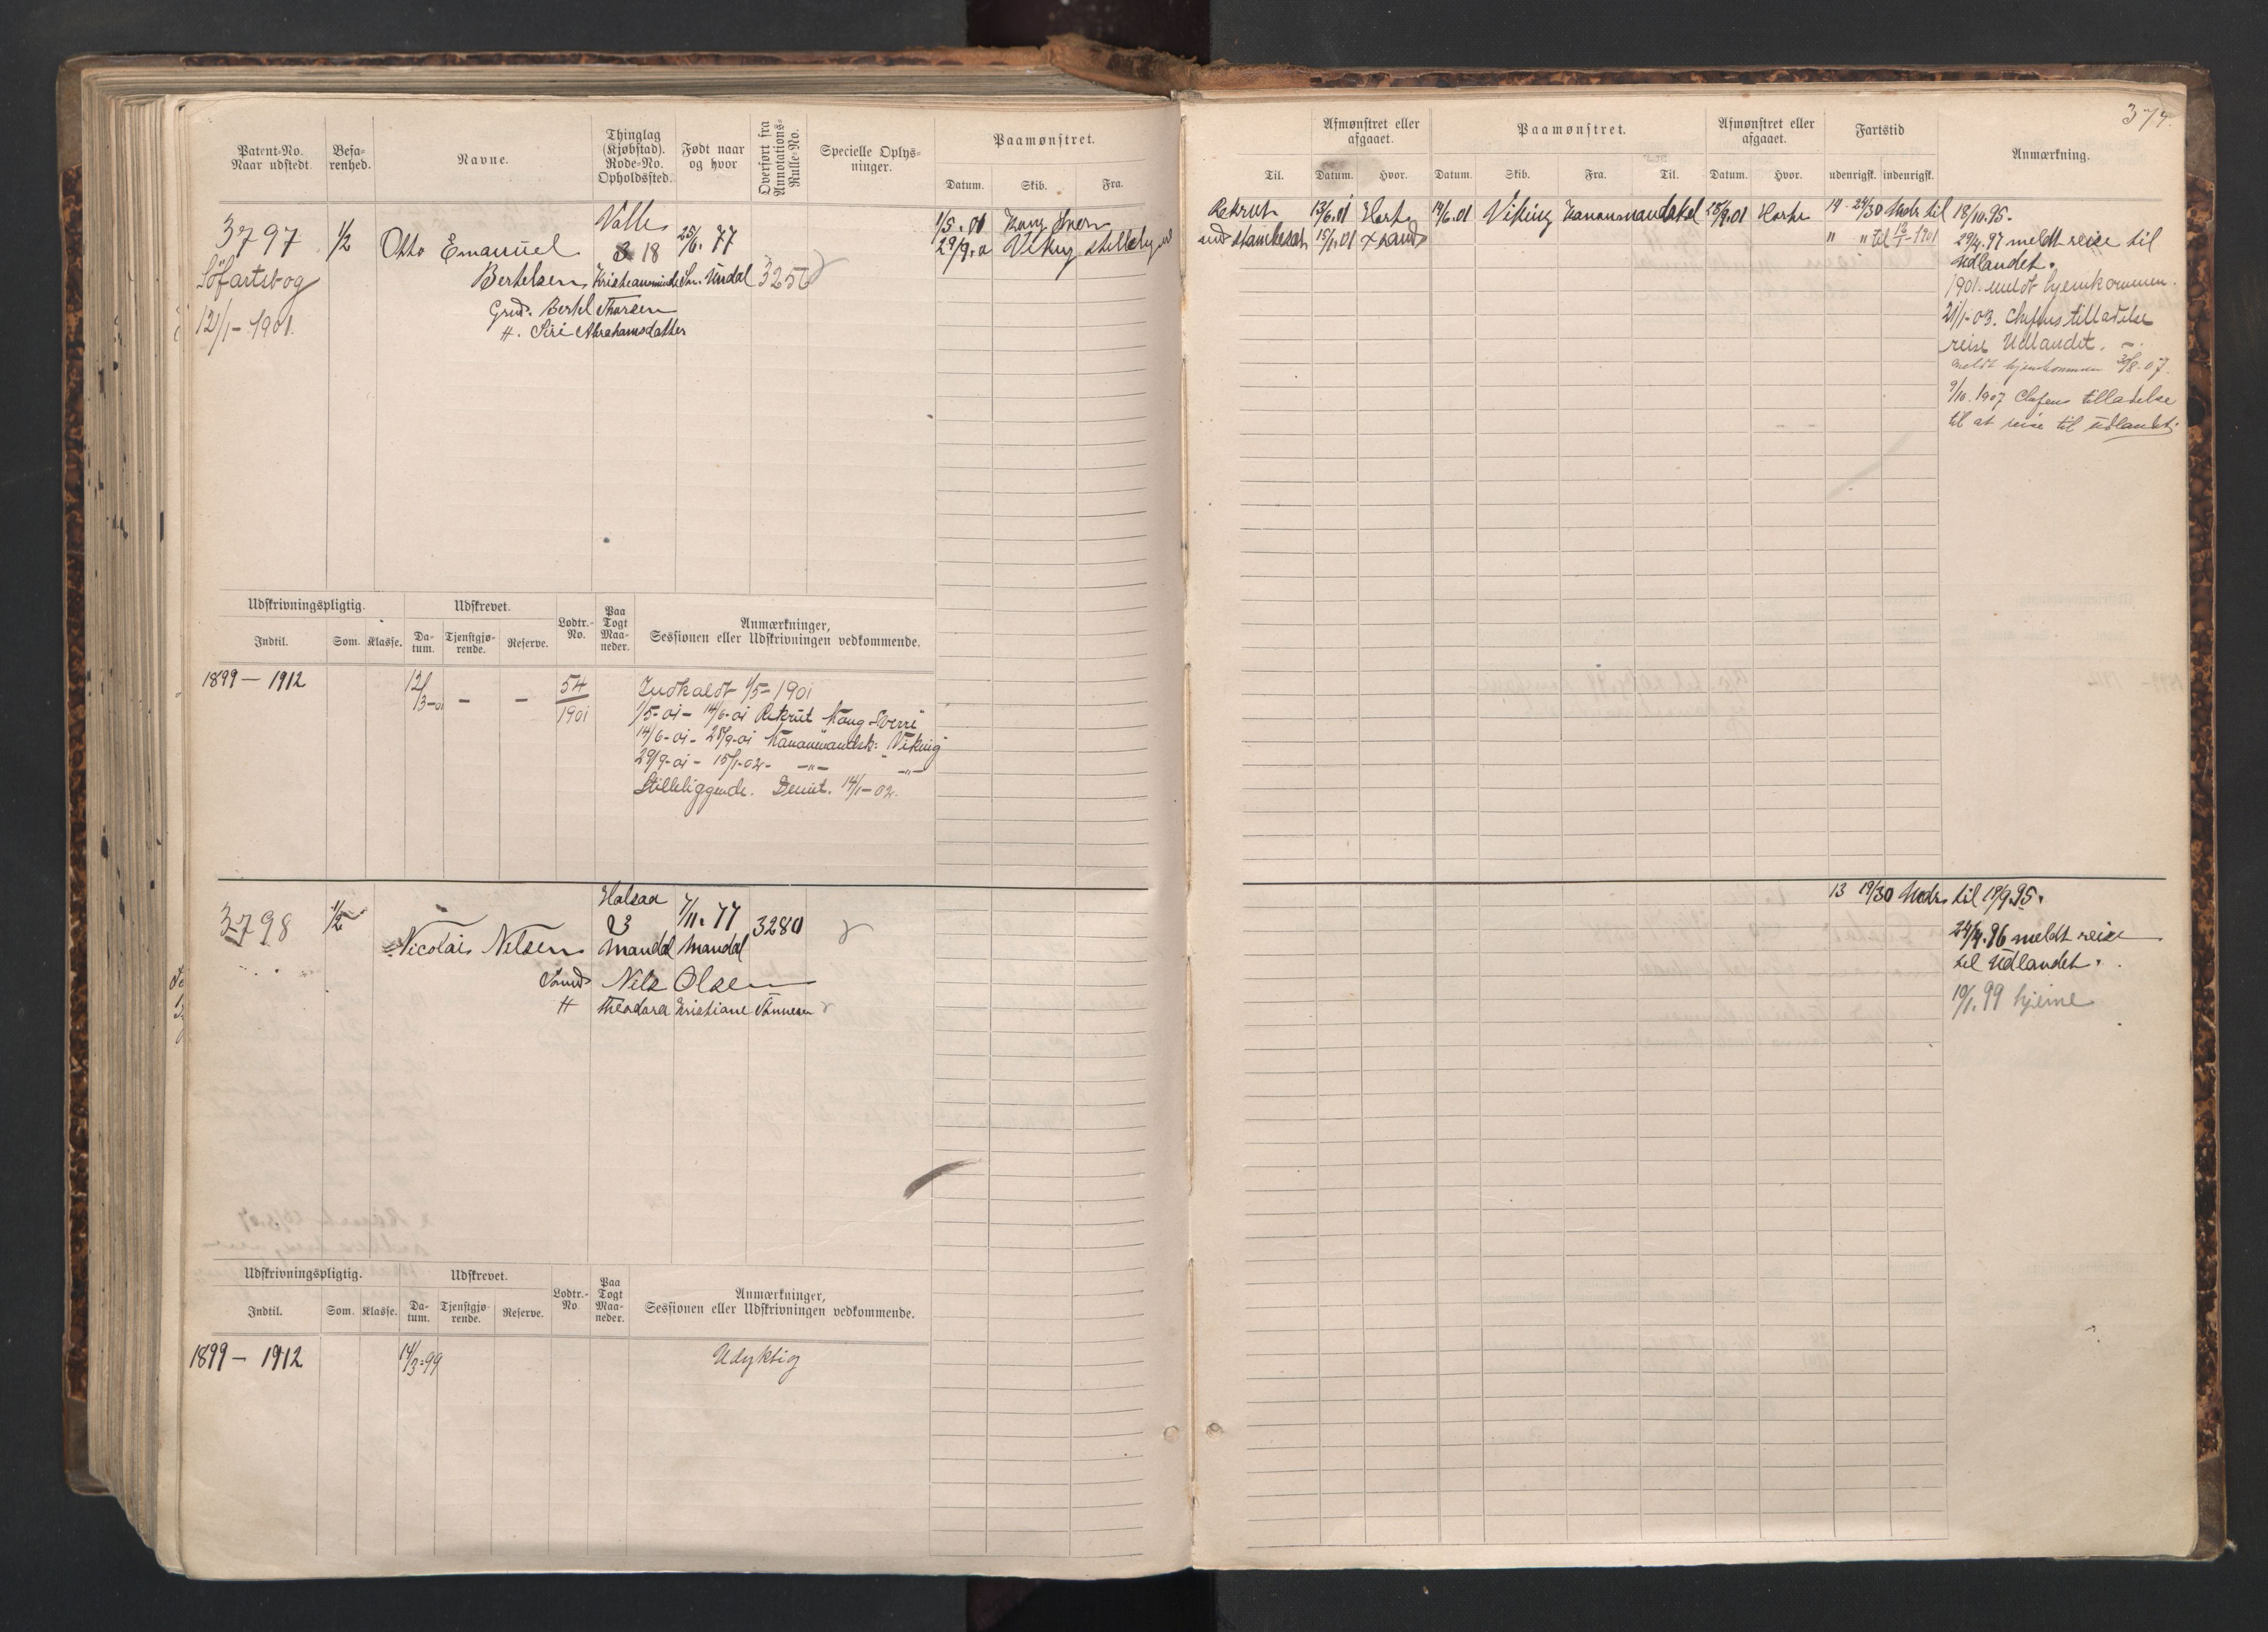 374.
Patent-No.
Naar udstedt.
Befa-
renhed.
Navne.
Thinglag
(Kjøbstad).
Rode-No.
Opholdssted.
Født naar
og hvor
Overført fra
Annotations-
Rulle-No.
Specielle Oplys-
ninger.
Paamønstret.
Datum.
Skib.
Fra.
Afmønstret eller
afgaaet.
Til.
Datum.
Hvor.
Paamønstret.
Datum.
Skib.
Fra.
Til.
Afmønstret eller
afgaaet.
Datum.
Hvor.
Fartstid
udenrigsk.
indenrigsk.
Anmærkning.
3797
Söfartsbog
12/1-1901.
1/2
Otto Emanuel
Bertelsen
Grd. Bertel Thorsen
H. Siri Abrahamsdatter
Valle
18
Kristiansminde
25/6. 77
Sn. Undal
3256
1/5.01 Kong Sverre
29/9.01 Viking
Rekrut 13/6.01 Horten 14/6.01 Viking Kanonmandskab 28/9.01 Horten 14 - 24/30 Mdr til 18/10.95.
15/1.01 Xsand
" " til 12/1-1901
29/4.97 meldt reise til
Udlandet.
1901. meldt hjemkommen.
21/1-03. Chefens tilladelse
reise Udlandet.
meldt hjemkommen 30/8-07.
9/10.1907 Chefens tilladelse
til at reise til Udlandet.
Udskrivningspligtig.
Indtil.
Som.
Klasse.
Udskrevet.
Da-
tum.
Tjenstgjø-
rende.
Reserve.
Lodtr.-
No.
Paa
Togt
Maa-
neder.
Anmærkninger,
Sessionen eller Udskrivningen vedkommende.
1899 - 1912
12/3-01
-
-
54
1901
Indkaldt 1/5-1901
1/5-01- 14/6-01 Rekrut Kong Sverre
14/6-01- 28/9-01 Kanonmandsk: Viking
29/9-01 - 15/1-02- -"- -"-
Stilleliggende. Demit. 14/1-02.
3798
1/2
Nicolai Nilsen
Halsaa
23
Mandal
7/11. 77
Mandal
3280
Nils Olsen
H Theodora Kristiane Tönnesen
13 19/30 Mdr til 18/9.95.
24/4.96 meldt reise
til Udlandet.
10/1.99 hjeme
Udskrivningspligtig.
Indtil.
Som.
Klasse.
Udskrevet.
Da-
tum.
Tjenstgjø-
rende.
Reserve.
Lodtr.-
No.
Paa
Togt
Maa-
neder.
Anmærkninger,
Sessionen eller Udskrivningen vedkommende.
1899 - 1912
14/3-99
Udyktig